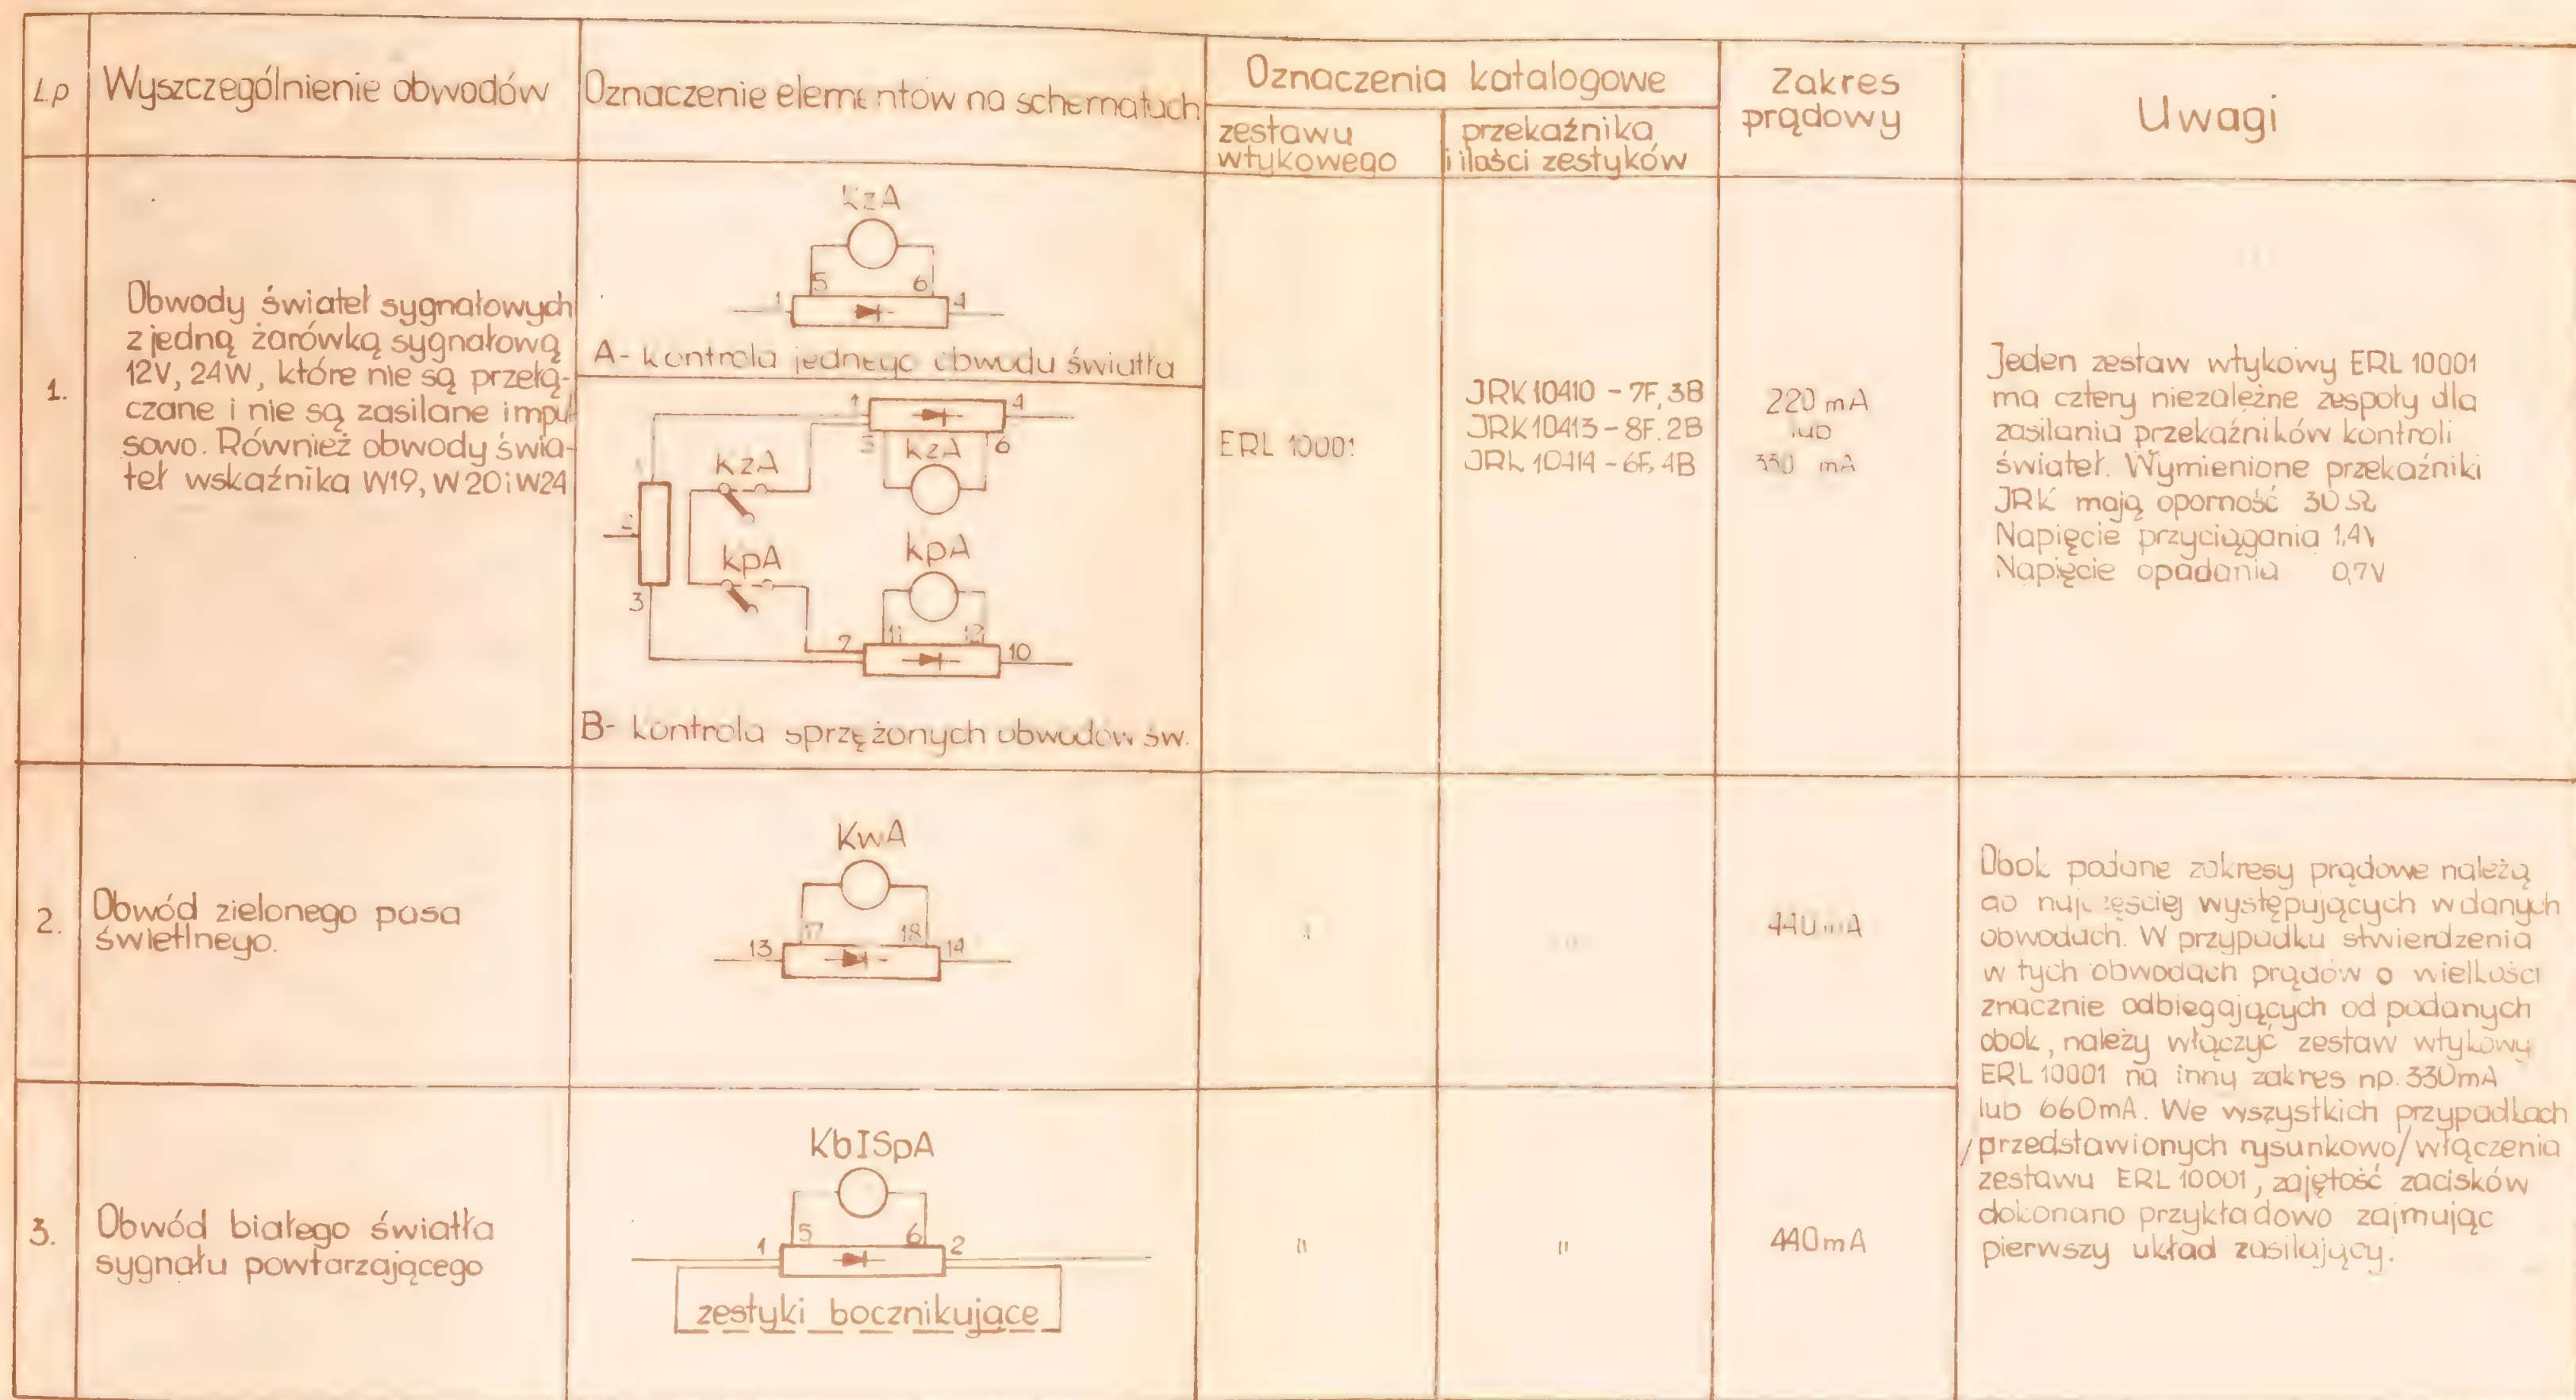 L.p
Wyszczególnienie obwodów
Oznaczenie elementów na schematach
Oznaczenia katalogowe
zestawu
wtykowego
przekaźnika
i ilości zestyków
Zakres
prądowy
Uwagi
1.
Obwody świateł sygnałowych
z jedną żarówką sygnałową
12V, 24W, które nie są przełą-
czane i nie są zasilane impul-
sowo. Również obwody świa-
teł wskaźnika W19, W20 i W24
kzA
5 6
1 4
A - kontrola jednego obwodu światła
1 4
5 kzA 6
kzA
1
2
3
kpA
kpA
11 12
7 10
B - kontrola sprzężonych obwodów św.
ERL 10001
JRK 10410 - 7F, 3B
JRK 10413 - 8F, 2B
JRK 10414 - 6F, 4B
220 mA
lub
330 mA
Jeden zestaw wtykowy ERL 10001
ma cztery niezależne zespoły dla
zasilania przekaźników kontroli
świateł. Wymienione przekaźniki
JRK mają oporność 30 Ω
Napięcie przyciągania 1,4V
Napięcie opadania 0,7V
2.
Obwód zielonego pasa
świetlnego.
KwA
17 18
13 14
440 mA
Obok podane zakresy prądowe należą
do najczęściej występujących w danych
obwodach. W przypadku stwierdzenia
w tych obwodach prądów o wielkości
znacznie odbiegających od podanych
obok, należy włączyć zestaw wtykowy
ERL 10001 na inny zakres np. 330mA
lub 660mA. We wszystkich przypadkach
/przedstawionych rysunkowo/ włączenia
zestawu ERL 10001, zajętość zacisków
dokonano przykładowo zajmując
pierwszy układ zasilający.
3.
Obwód białego światła
sygnału powtarzającego
KbISpA
5 6
1 2
zestyki bocznikujące
"
"
440mA